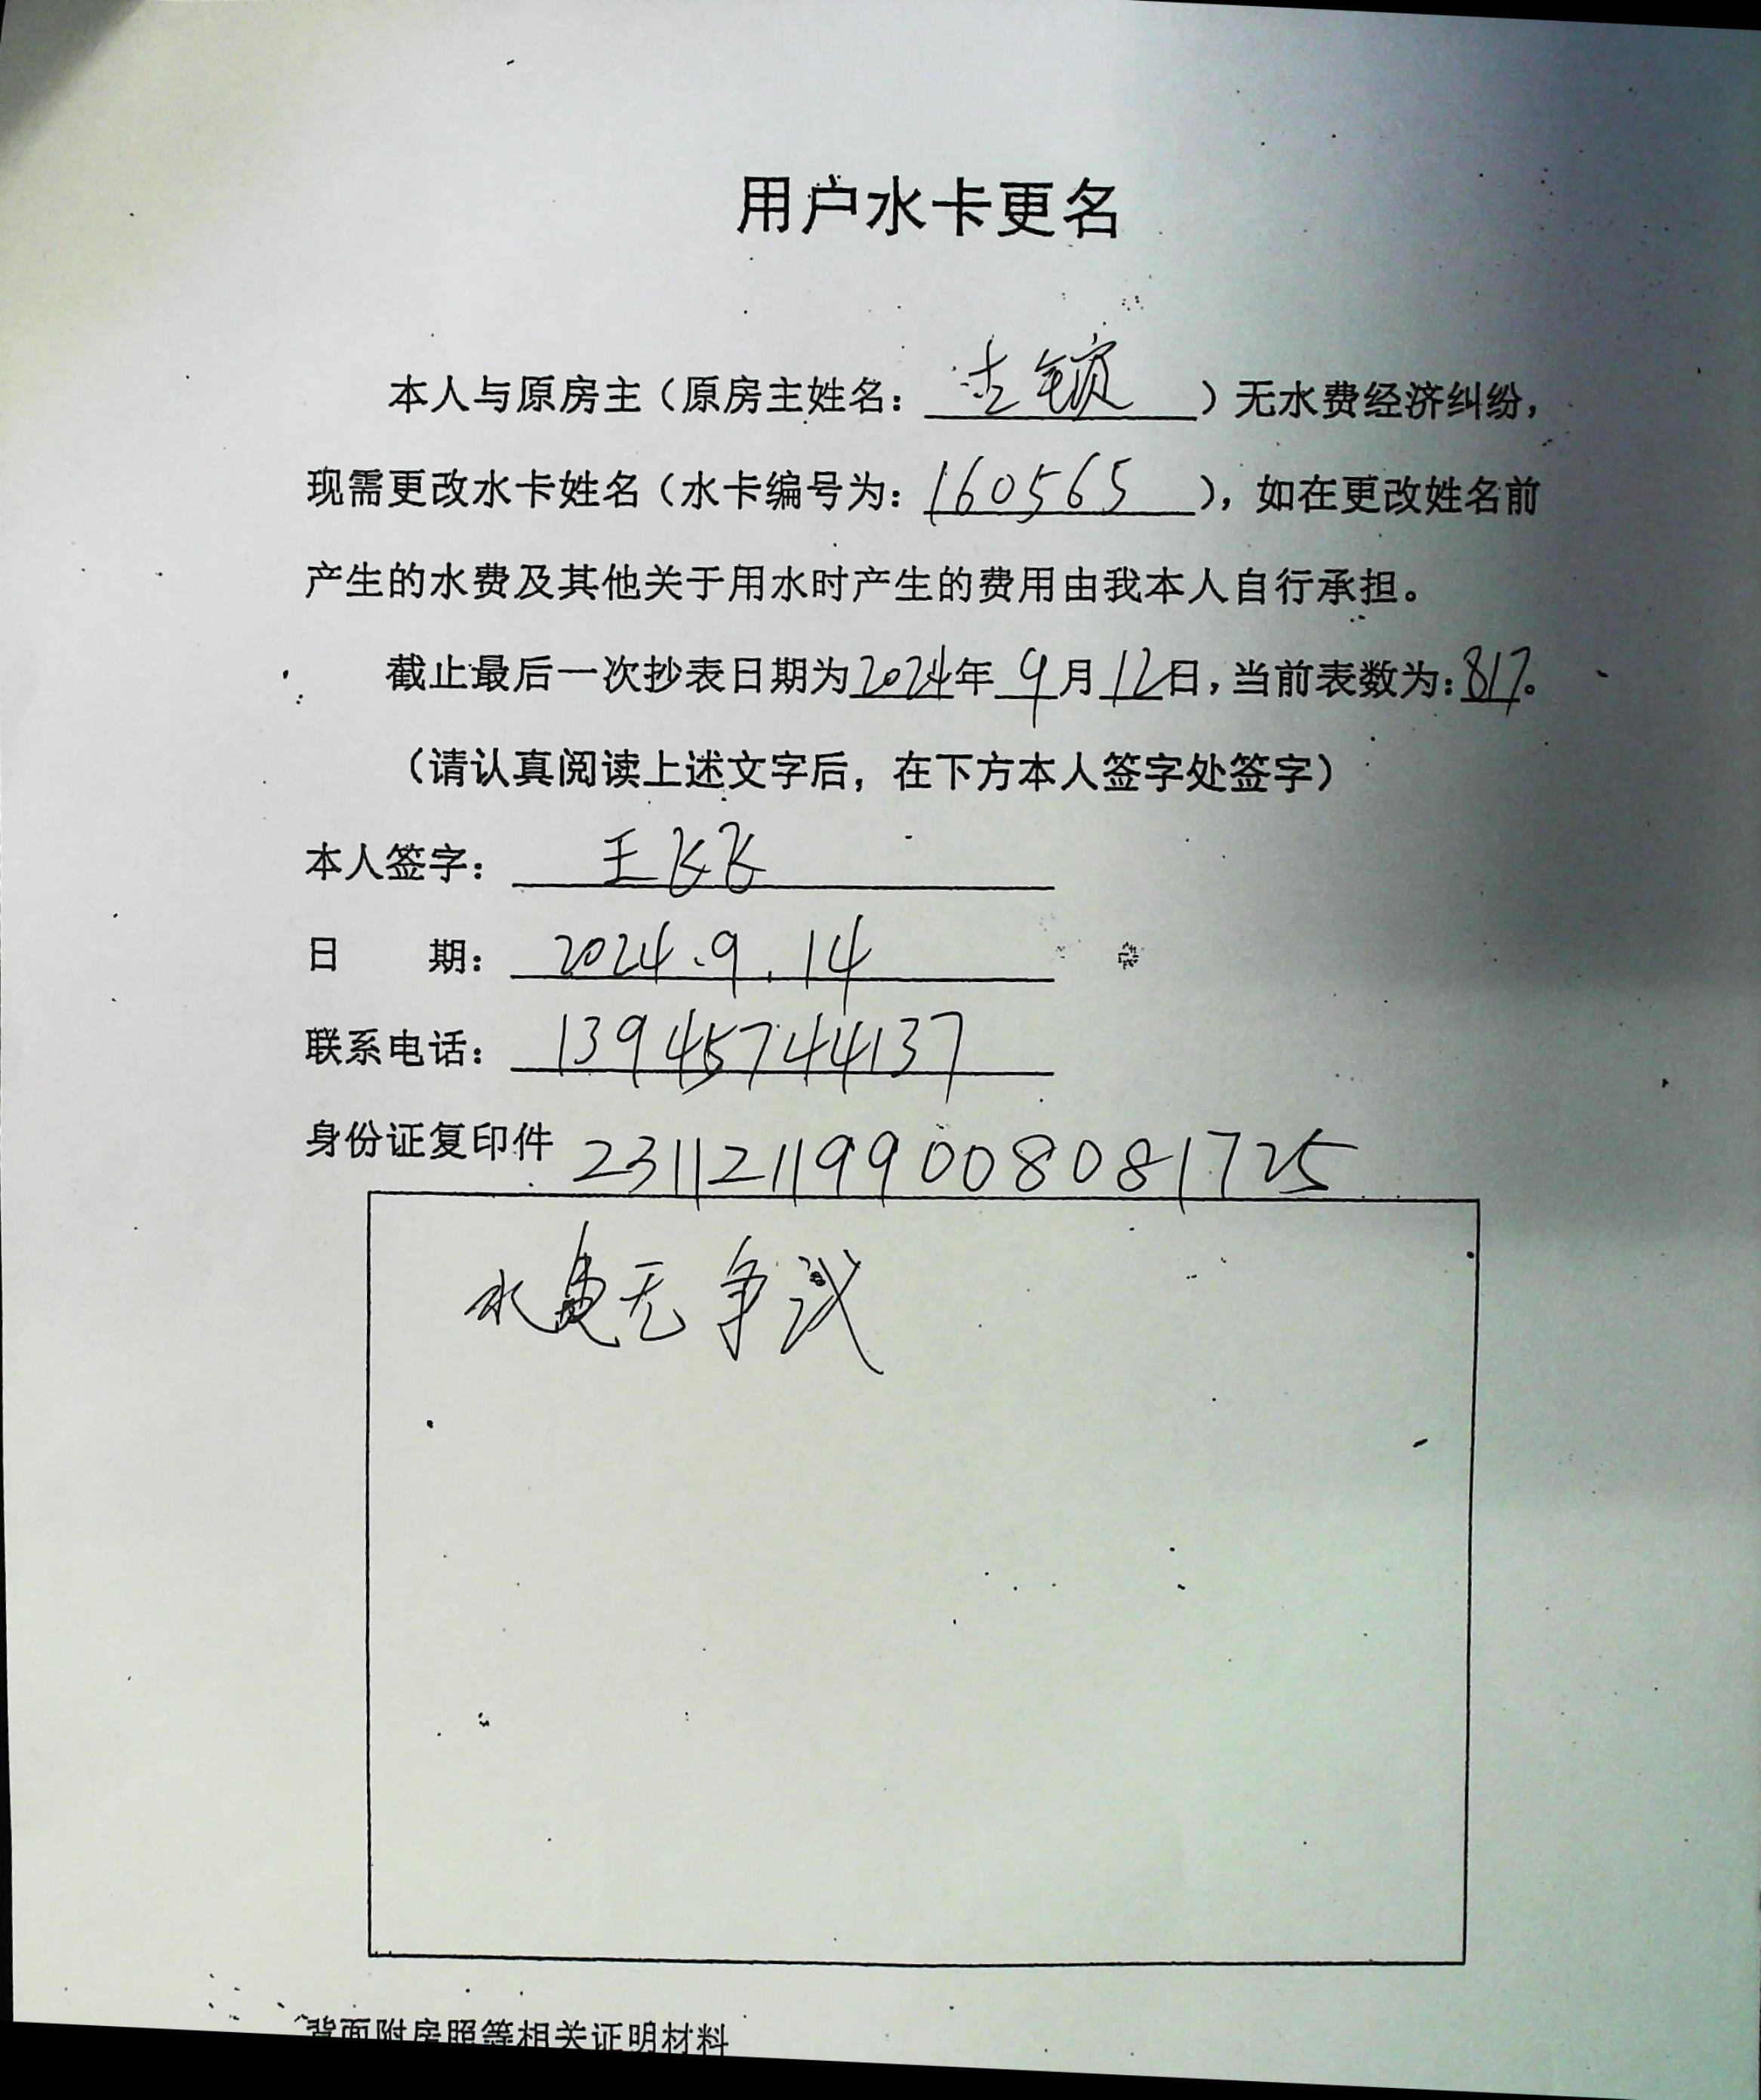 用户水卡更名
本人与原房主（原房主姓名：）无水费经济纠纷，
现需更改水卡姓名（水卡编号为：160565），如在更改姓名前
产生的水费及其他关于用水时产生的费用由我本人自行承担。
截止最后一次抄表日期为2024年9月12日，当前表数为：817。
（请认真阅读上述文字后，在下方本人签字处签字）
本人签字：王飞飞
日期：2024.9.14
联系电话：13945744137
身份证复印件 231121199008081725
水费无争议
背面附房照等相关证明材料